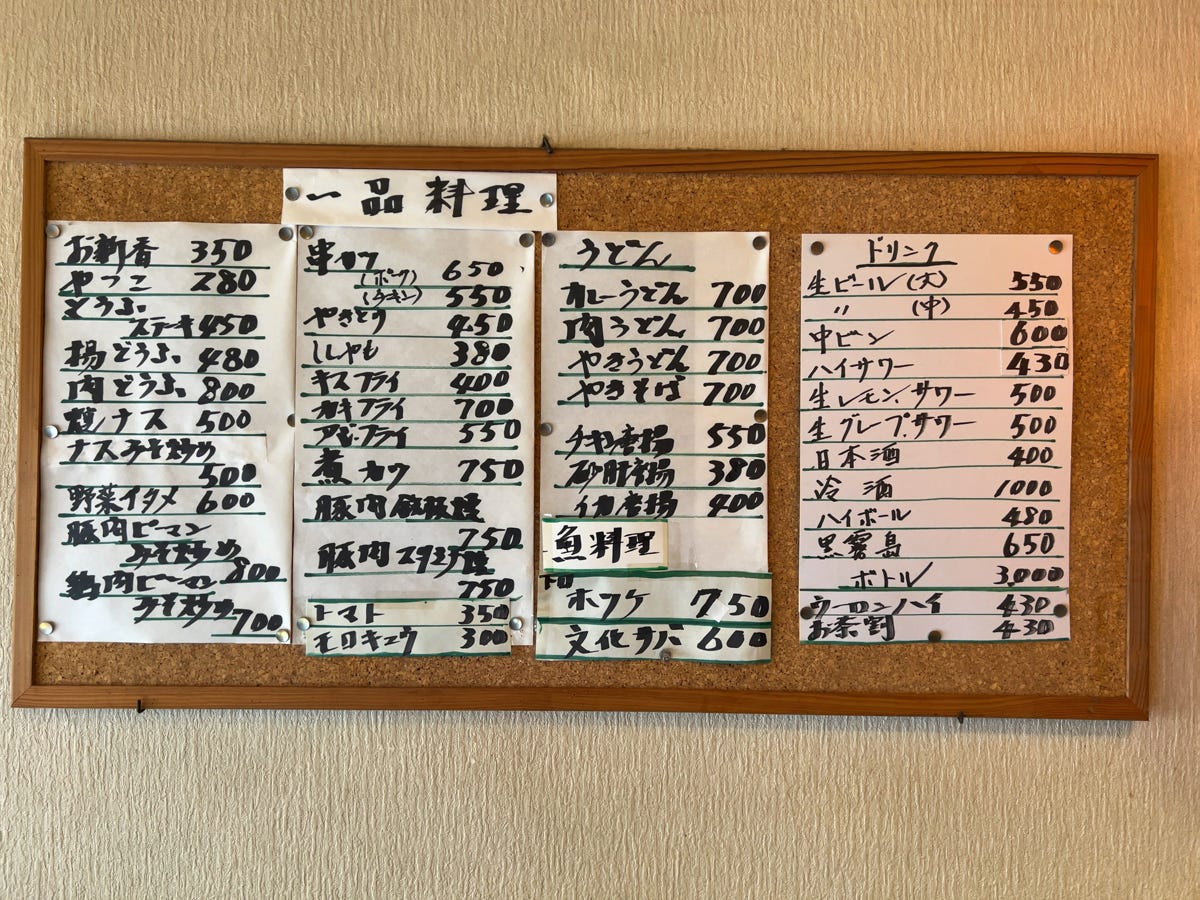 一品料理
お新香 350
やっこ 280
とうふ
ステーキ 450
揚どうふ 480
肉どうふ 800
焼ナス 500
ナスみそ炒め
500
野菜イタメ 600
豚肉ピーマン
みそ炒め 800
鶏肉ピーマン
みそ炒め 700
串カツ
(ポーク) 650
(チキン) 550
やきとり 450
ししゃも 380
キスフライ 400
カキフライ 700
アジフライ 550
煮カツ 750
豚肉鉄板焼
750
豚肉スタミナ焼
750
トマト 350
モロキュウ 300
うどん
カレーうどん 700
肉うどん 700
やきうどん 700
やきそば 700
チキン唐揚 550
砂肝唐揚 380
イカ唐揚 400
魚料理
ホッケ 750
文化サバ 600
ドリンク
生ビール(大) 550
〃 (中) 450
中ビン 600
ハイサワー 430
生レモン.サワー 500
生グレープ.サワー 500
日本酒 400
冷酒 1000
ハイボール 480
黒霧島 650
ボトル 3,000
ウーロンハイ 430
お茶割 430